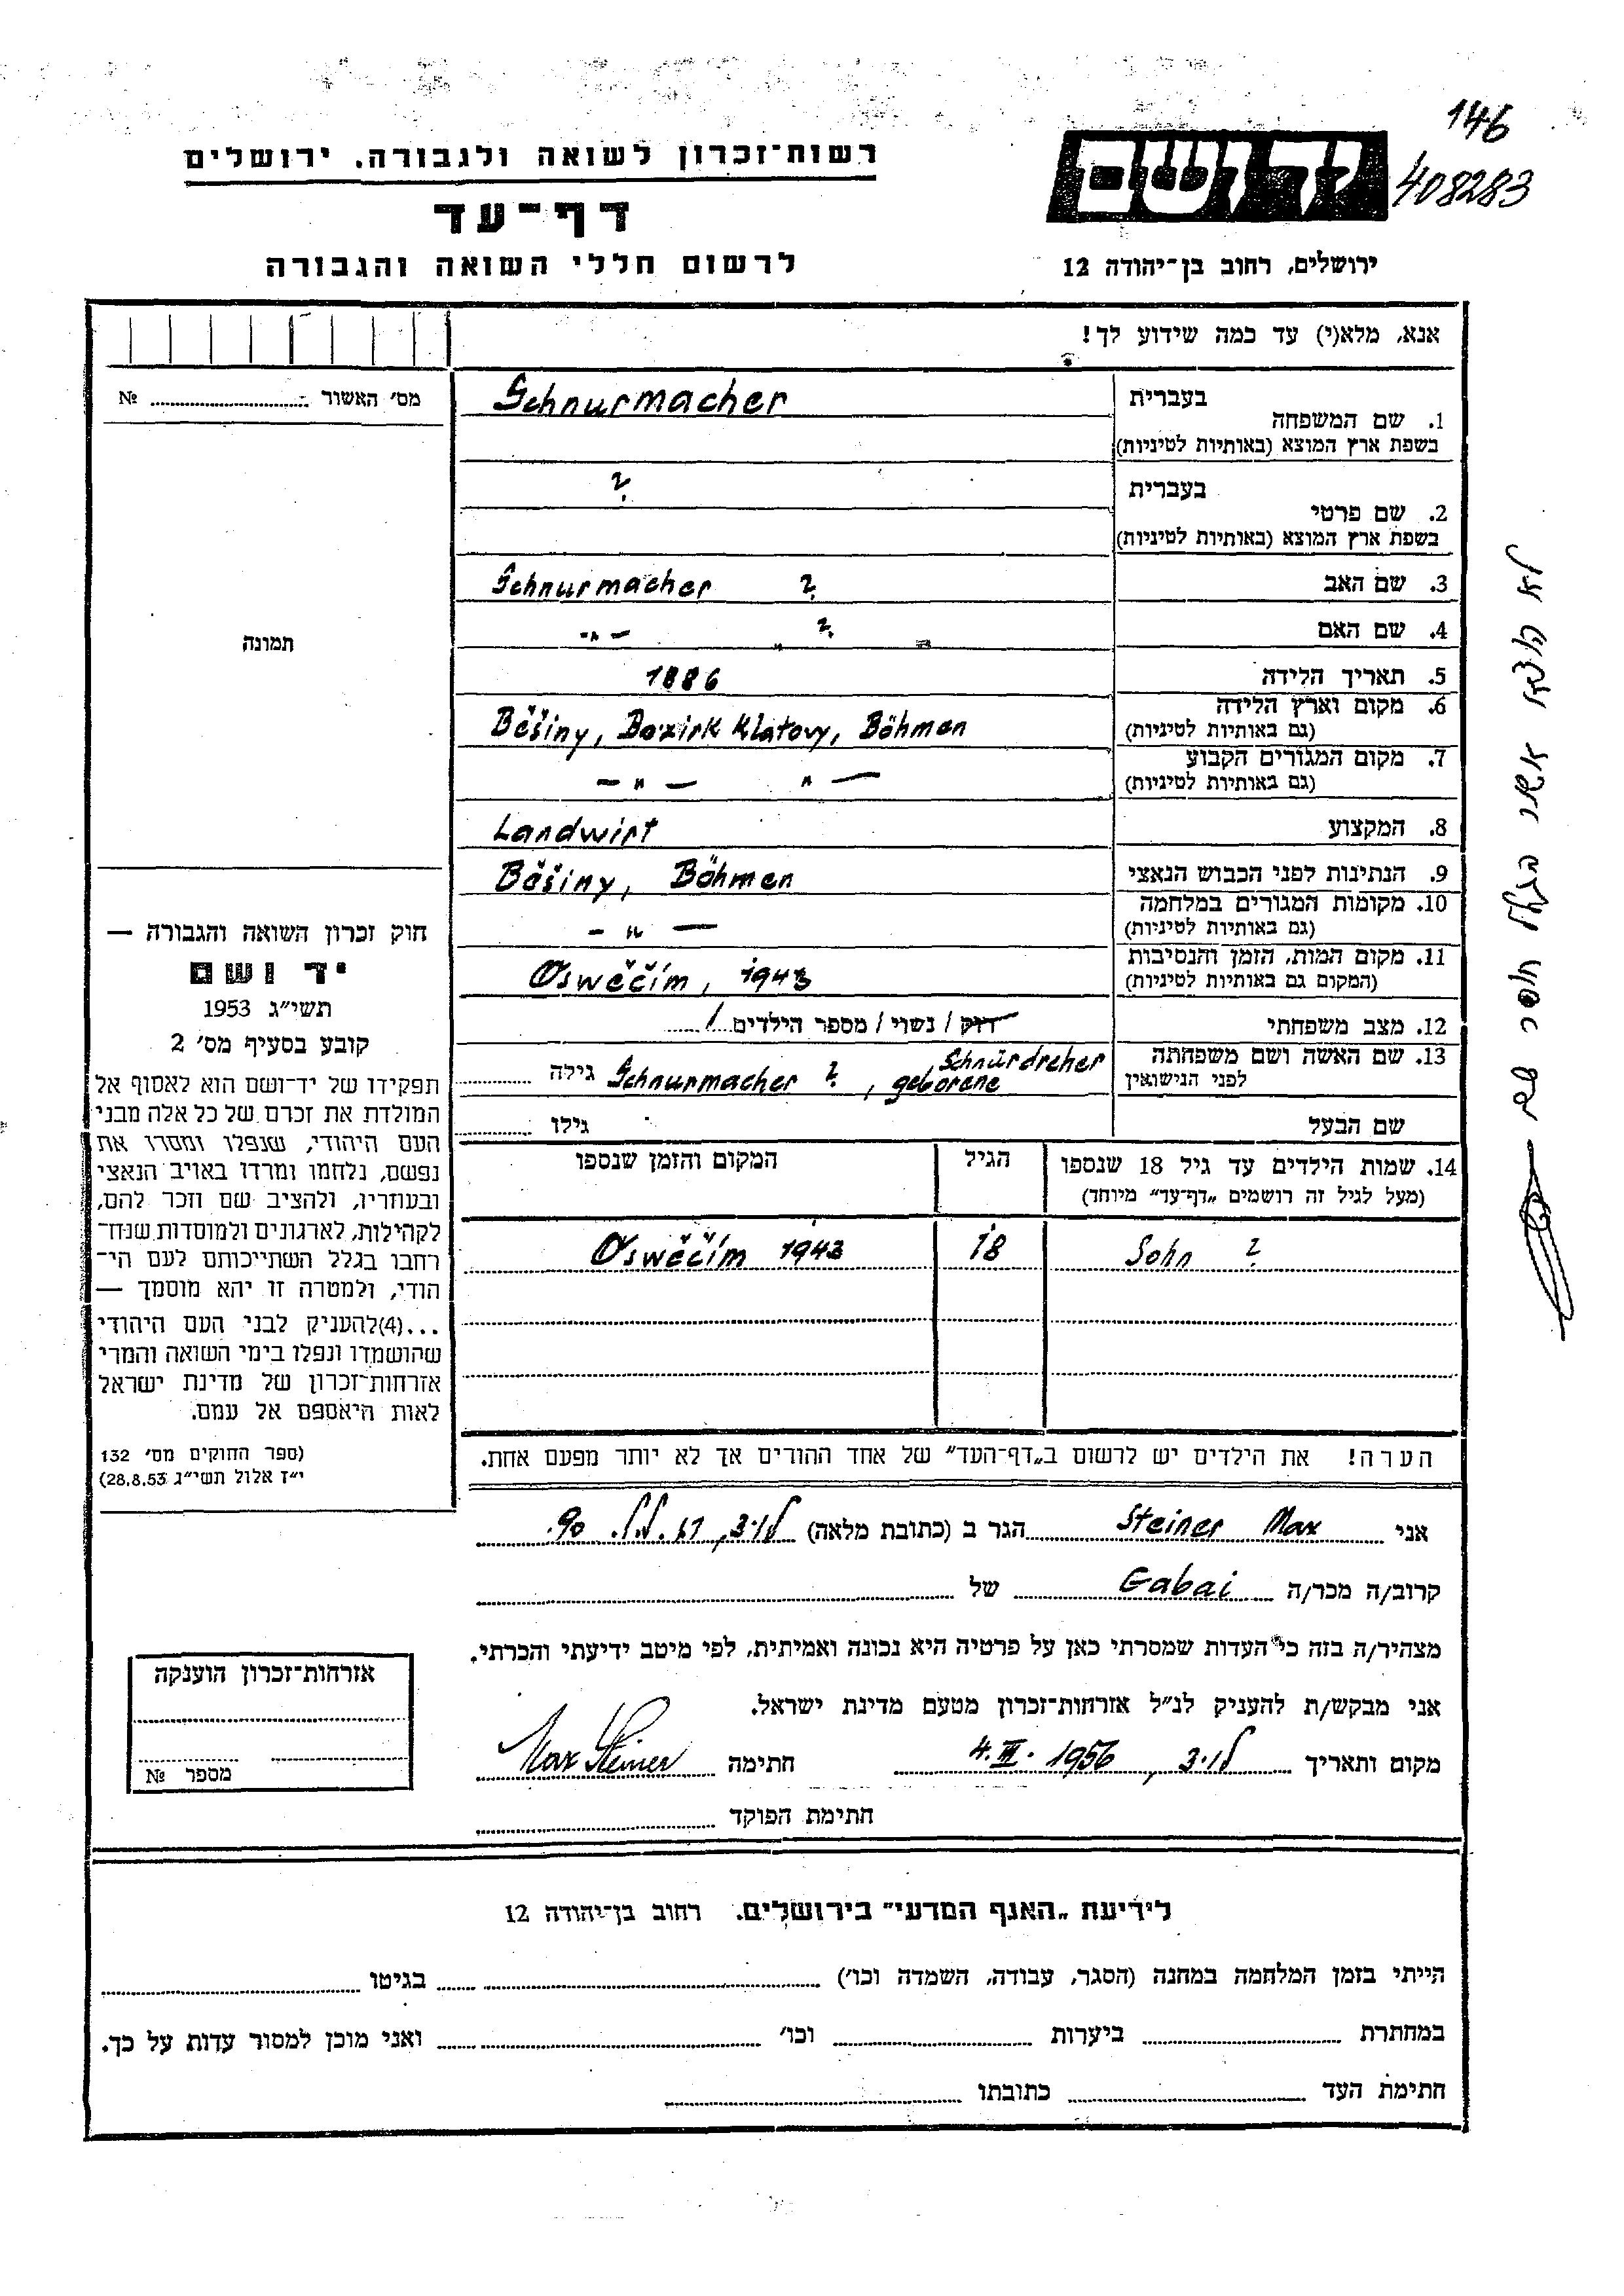 146
408283
יד ושם
ירושלים, רחוב בן־יהודה 12
רשות־זכרון לשואה ולגבורה. ירושלים
דף־עד
לרשום חללי השואה והגבורה
אנא, מלא(י) עד כמה שידוע לך!
מס׳ האשור № 
תמונה
בעברית
1. שם המשפחה
בשפת ארץ המוצא (באותיות לטיניות)
Schnurmacher
בעברית
2. שם פרטי
בשפת ארץ המוצא (באותיות לטיניות)
?
3. שם האב Schnurmacher ?
4. שם האם -"- ?
5. תאריך הלידה 1886
6. מקום וארץ הלידה
(גם באותיות לטיניות)
Běšiny, Bezirk Klatovy, Böhmen
7. מקום המגורים הקבוע
(גם באותיות לטיניות)
— " — " —
8. המקצוע Landwirt
9. הנתינות לפני הכבוש הנאצי Běšiny, Böhmen
10. מקומות המגורים במלחמה
(גם באותיות לטיניות)
- " —
11. מקום המות, הזמן והנסיבות
(המקום גם באותיות לטיניות)
Oswěčím, 1943
12. מצב משפחתי רווק / נשוי / מספר הילדים 1
13. שם האשה ושם משפחתה
לפני הנישואין
Schnurmacher ?, geborene Schnürdreher גילה
שם הבעל גילו
14. שמות הילדים עד גיל 18 שנספו
(מעל לגיל זה רושמים „דף־עד״ מיוחד)
הגיל
המקום והזמן שנספו
Sohn ? 18 Oswěčím 1943
הערה! את הילדים יש לרשום ב„דף־העד״ של אחד ההורים אך לא יותר מפעם אחת.
חוק זכרון השואה והגבורה —
יד ושם
תשי״ג 1953
קובע בסעיף מס׳ 2
תפקידו של יד־ושם הוא לאסוף אל
המולדת את זכרם של כל אלה מבני
העם היהודי, שנפלו ומסרו את
נפשם, נלחמו ומרדו באויב הנאצי
ובעוזריו, ולהציב שם וזכר להם,
לקהילות, לארגונים ולמוסדות שנח־
רבו בגלל השתייכותם לעם הי־
הודי, ולמטרה זו יהא מוסמך —
...(4)להעניק לבני העם היהודי
שהושמדו ונפלו בימי השואה והמרי
אזרחות־זכרון של מדינת ישראל
לאות היאספם אל עמם.
(ספר החוקים מס׳ 132
י״ז אלול תשי״ג 28.8.53)
אני Steiner Max הגר ב (כתובת מלאה) 90
קרוב/ה מכר/ה Gabai של
מצהיר/ה בזה כי העדות שמסרתי כאן על פרטיה היא נכונה ואמיתית, לפי מיטב ידיעתי והכרתי.
אני מבקש/ת להעניק לנ״ל אזרחות־זכרון מטעם מדינת ישראל.
מקום ותאריך 4. III. 1956 חתימה Max Steiner
חתימת הפוקד
אזרחות־זכרון הוענקה
מספר №
לידיעת „האגף המדעי״ בירושלים. רחוב בן־יהודה 12
הייתי בזמן המלחמה במחנה (הסגר, עבודה, השמדה וכו׳) בגיטו
במחתרת ביערות וכו׳ ואני מוכן למסור עדות על כך.
חתימת העד כתובתו